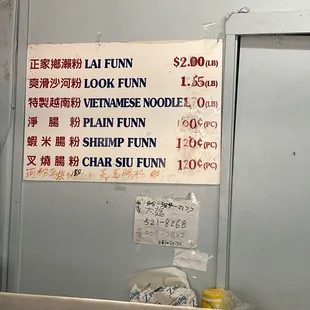 正家鄉瀨粉 LAI FUNN $2.00(LB)
爽滑沙河粉 LOOK FUNN 1.65(LB)
特製越南粉 VIETNAMESE NOODLE 1.70(LB)
淨腸粉 PLAIN FUNN 00¢(PC)
蝦米腸粉 SHRIMP FUNN 120¢(PC)
叉燒腸粉 CHAR SIU FUNN 120¢(PC)
大
521-8268